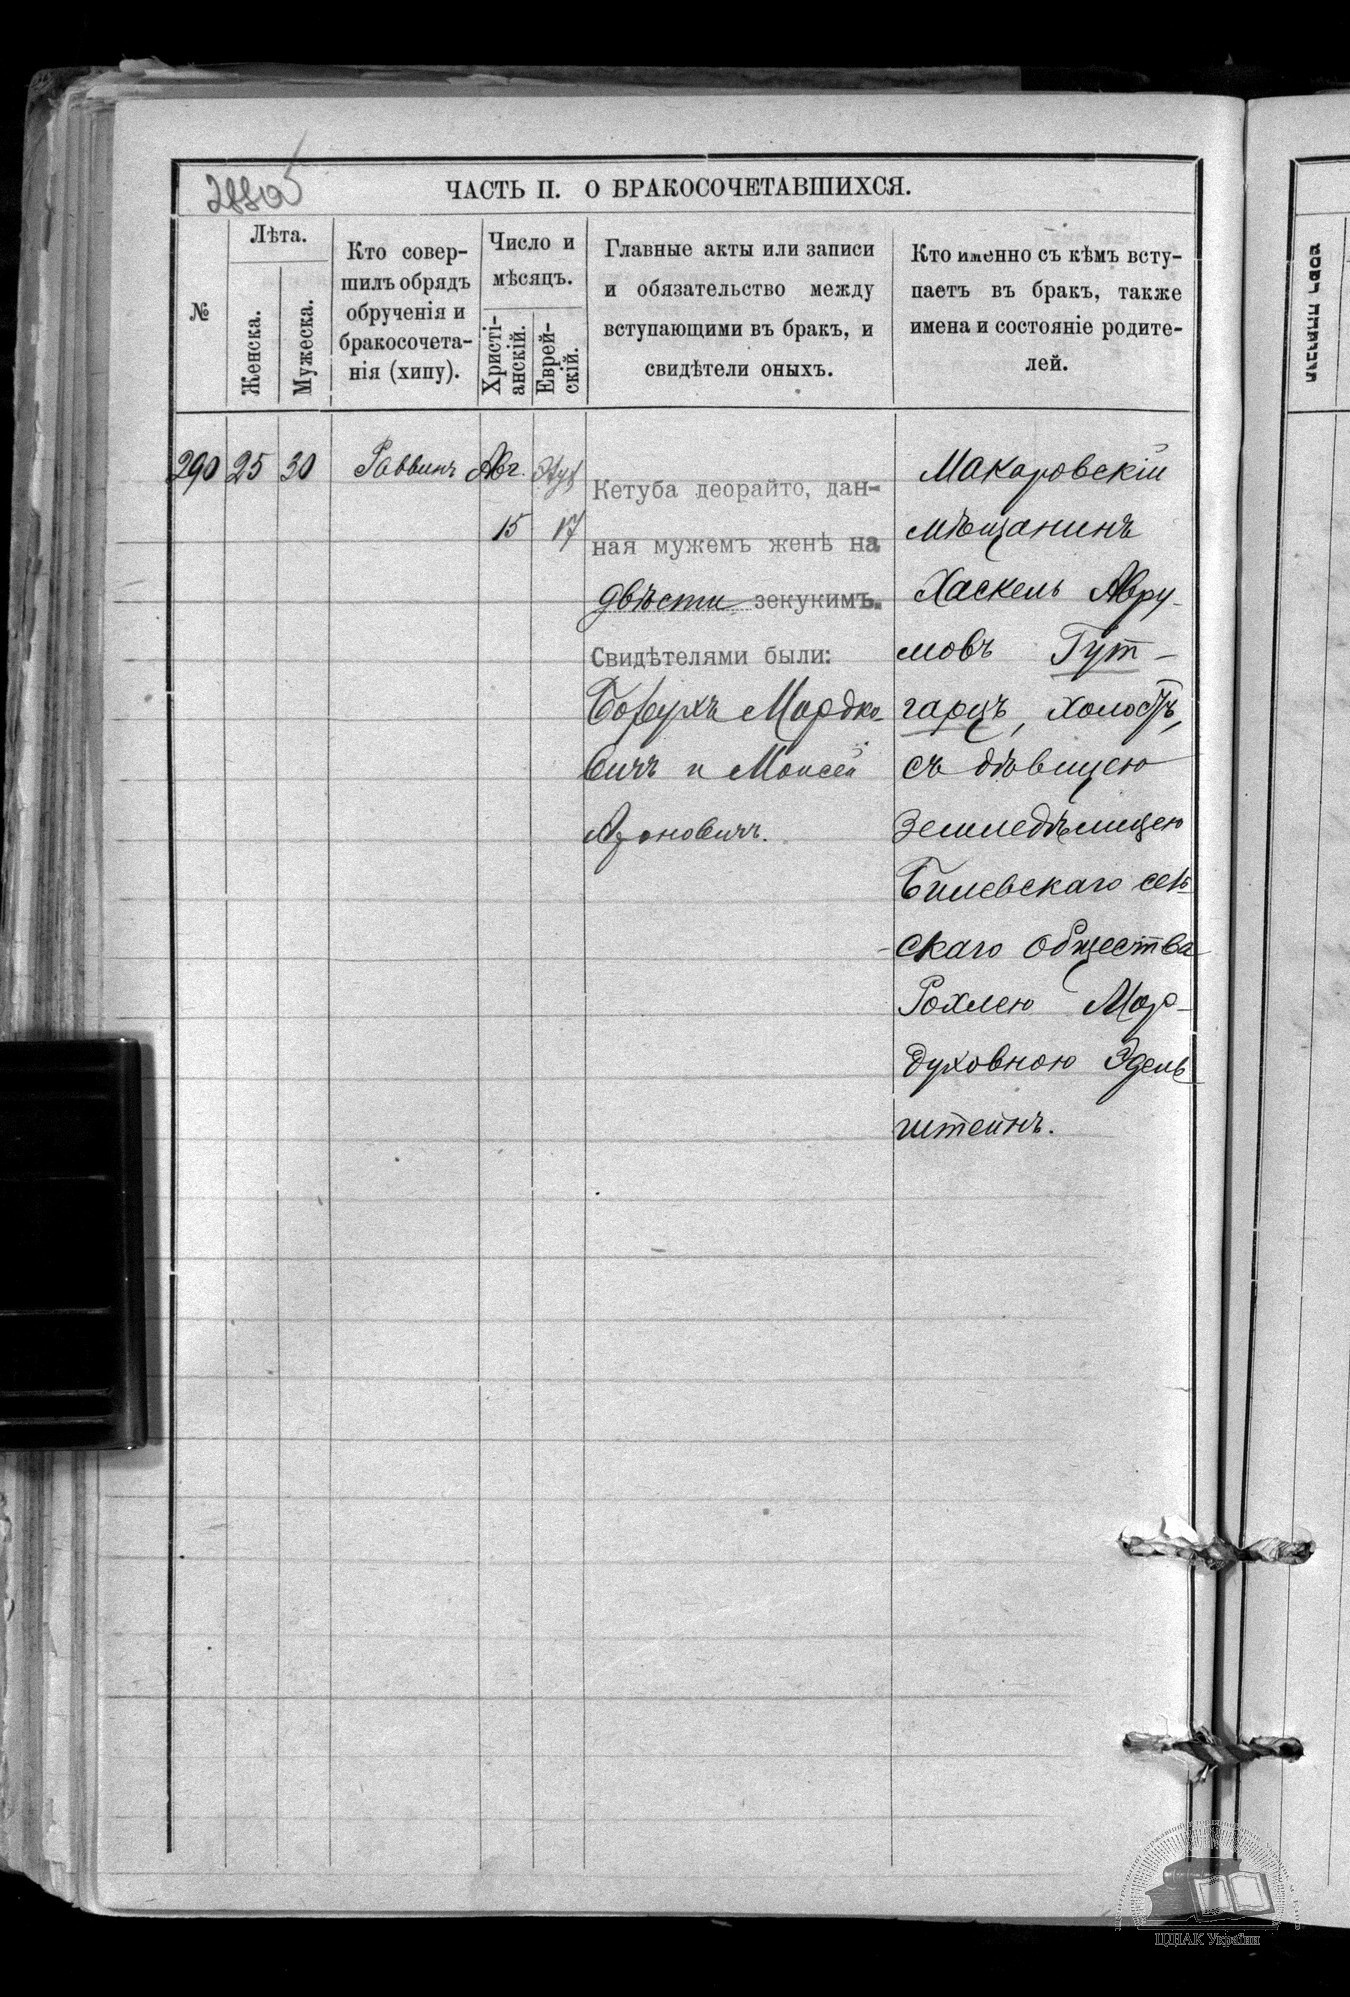 ЧАСТЬ II. О БРАКОСОЧЕТАВШИХСЯ.
№
Лѣта.
Женска.
Мужеска.
Кто совер-
шилъ обрядъ
обрученія и
бракосочета-
нія (хипу).
Число и
мѣсяцъ.
Христі-
анскій.
Еврей-
скій.
Главные акты или записи
и обязательство между
вступающими въ брак, и
свидѣтели оныхъ.
Кто именно съ кѣмъ всту-
паетъ въ бракъ, также
имена и состояніе родите-
лей.
290
25
30
Раввинъ
Авг.
15
17
Кетуба деорайто, дан-
ная мужемъ женѣ на
двѣсти зекукимъ.
Свидѣтелями были:
Борухъ Мордко
вичъ и Моисей
Ароновичъ.
Макаровскій
мѣщанинъ
Хаскель Авру-
мовъ Гут-
гарцъ, холостъ,
съ дѣвицею
земледѣлицею
Билевскаго сель
скаго общества
Рохлею Мор-
духовною Эдель
штейнъ.
ЦДІАК України